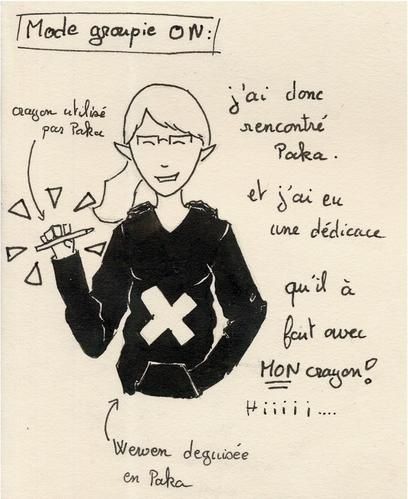 Mode groupie ON:
crayon utilisé
par Paka
j'ai donc
rencontré
Paka.
et j'ai eu
une dédicace
qu'il à
fait avec
MON crayon!
Hiiiii....
Werwen deguisée
en Paka